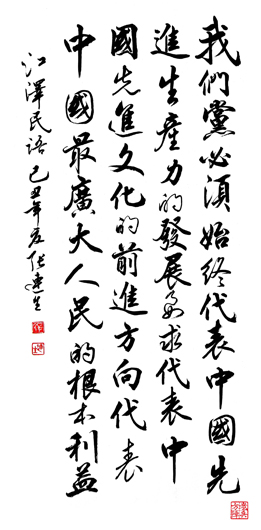 我們黨必須始終代表中國先
進生產力的發展要求代表中
國先進文化的前進方向代表
中國最廣大人民的根本利益
江澤民語己丑年夏